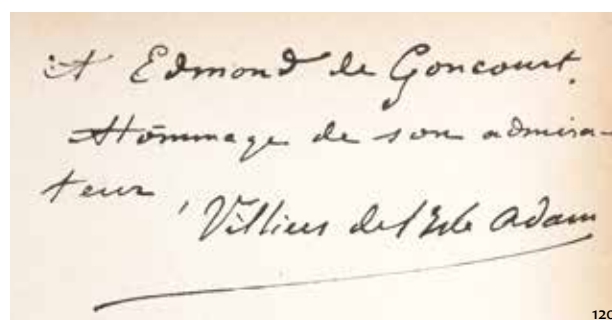 A Edmond de Goncourt.
Hommage de son admira-
teur,
Villiers de l'Isle Adam
120